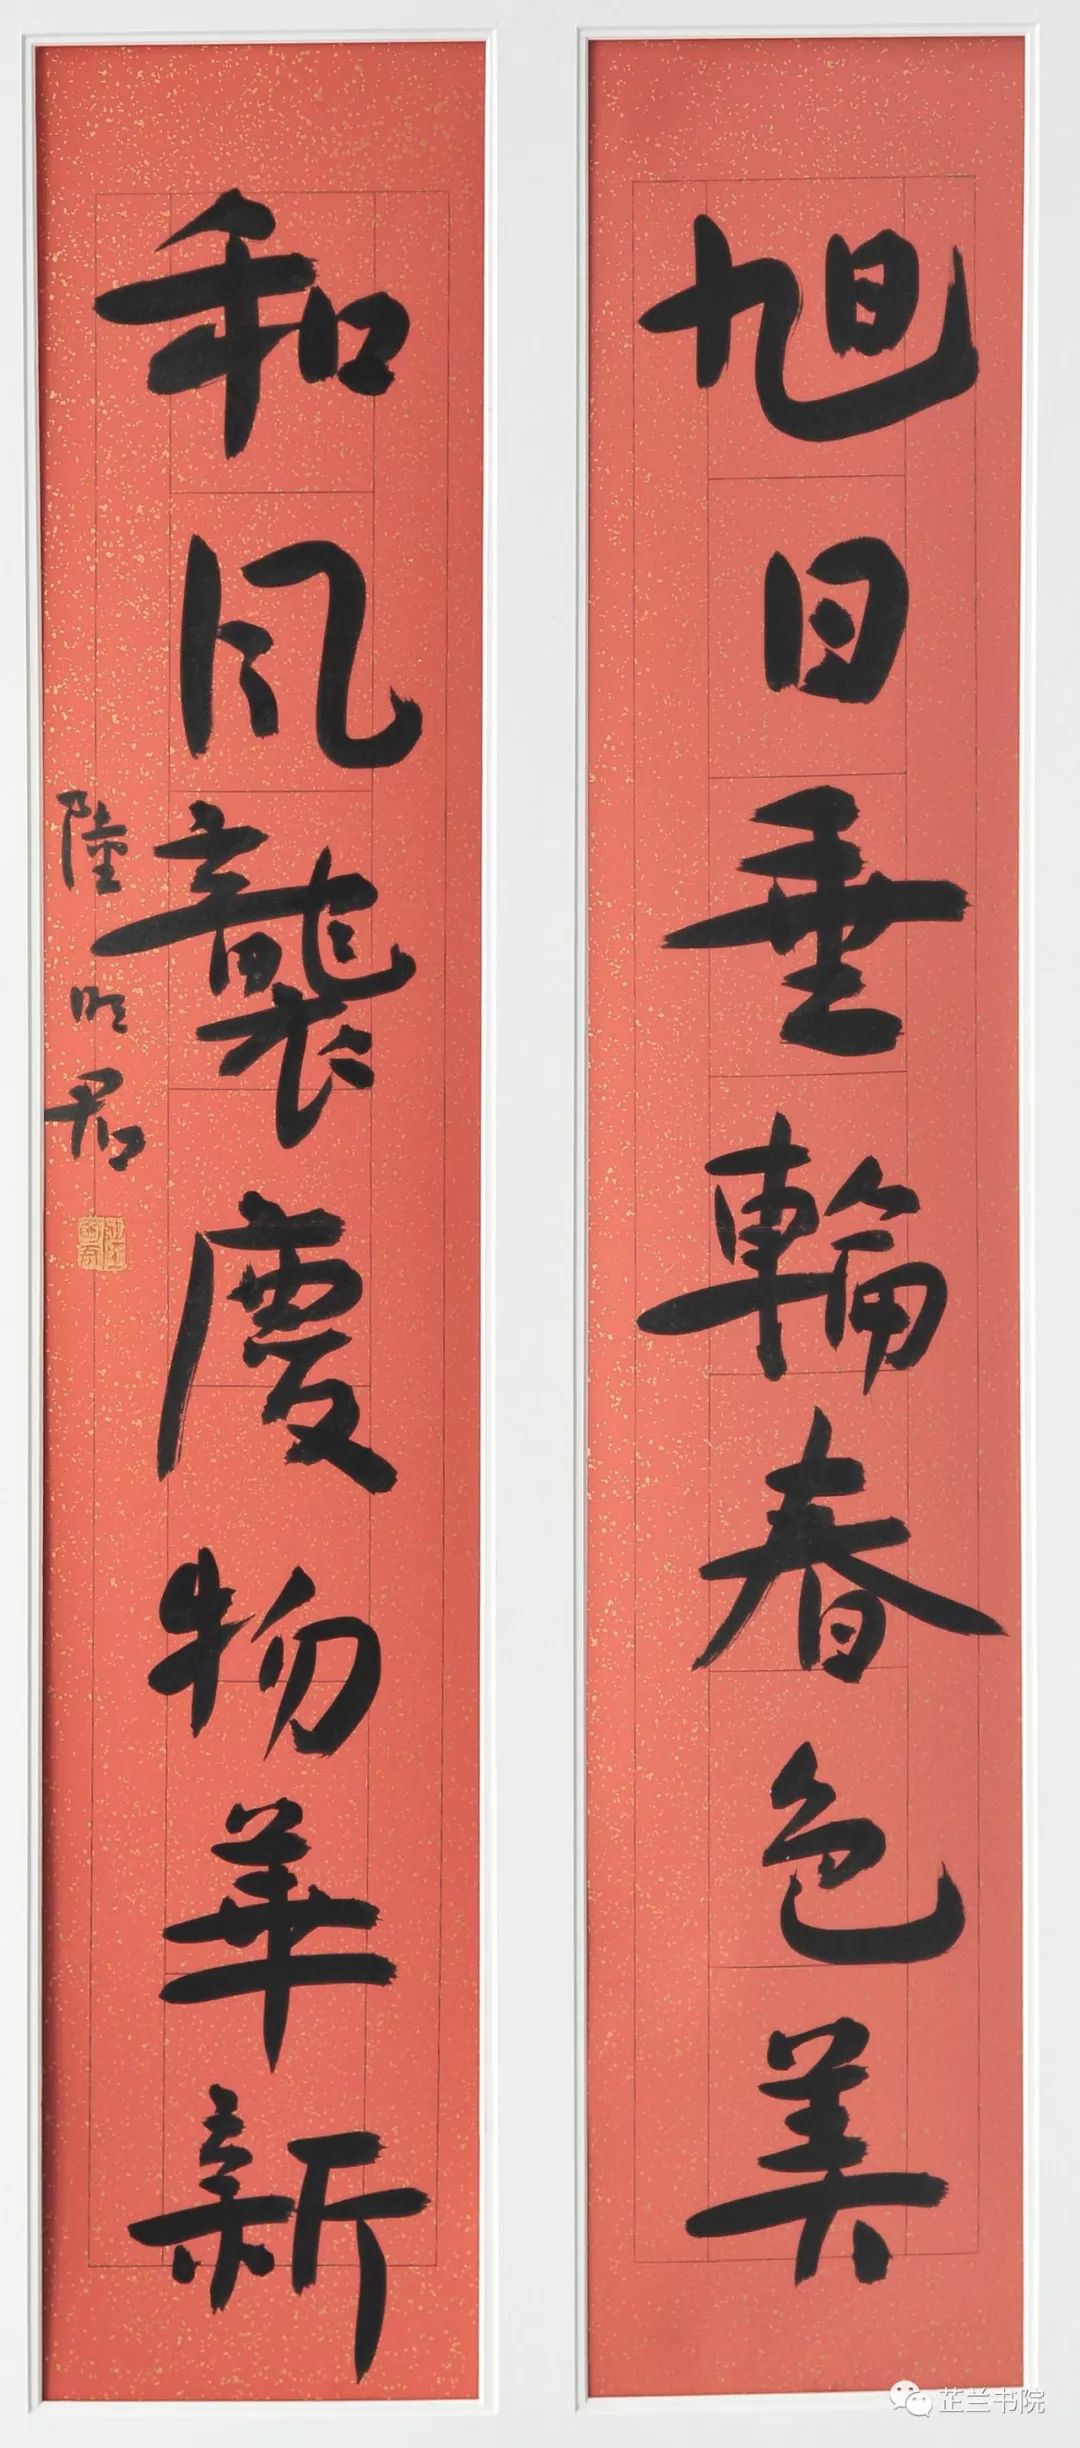 旭日垂輪春色美
和風襲慶物華新
陸明君
芷兰书院